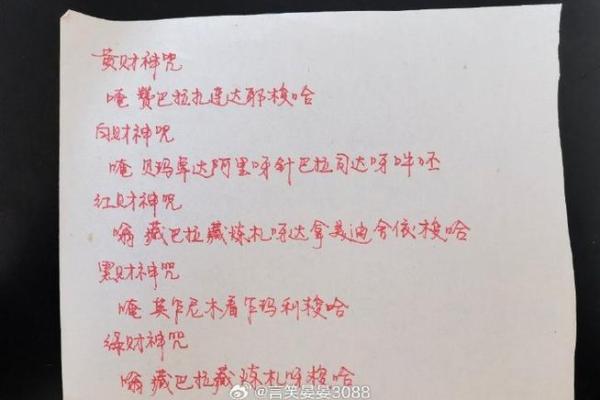 黄财神咒
唵 赞巴拉扎连达耶梭哈
白财神咒
唵 贝玛卓达阿里呀针巴拉司达呀吽呸
红财神咒
嗡 藏巴拉藏炼札呀达拿美迪舍依梭哈
黑财神咒
唵 英乍尼木看乍玛利梭哈
绿财神咒
嗡 藏巴拉藏炼札呀梭哈
@言笑晏晏3088